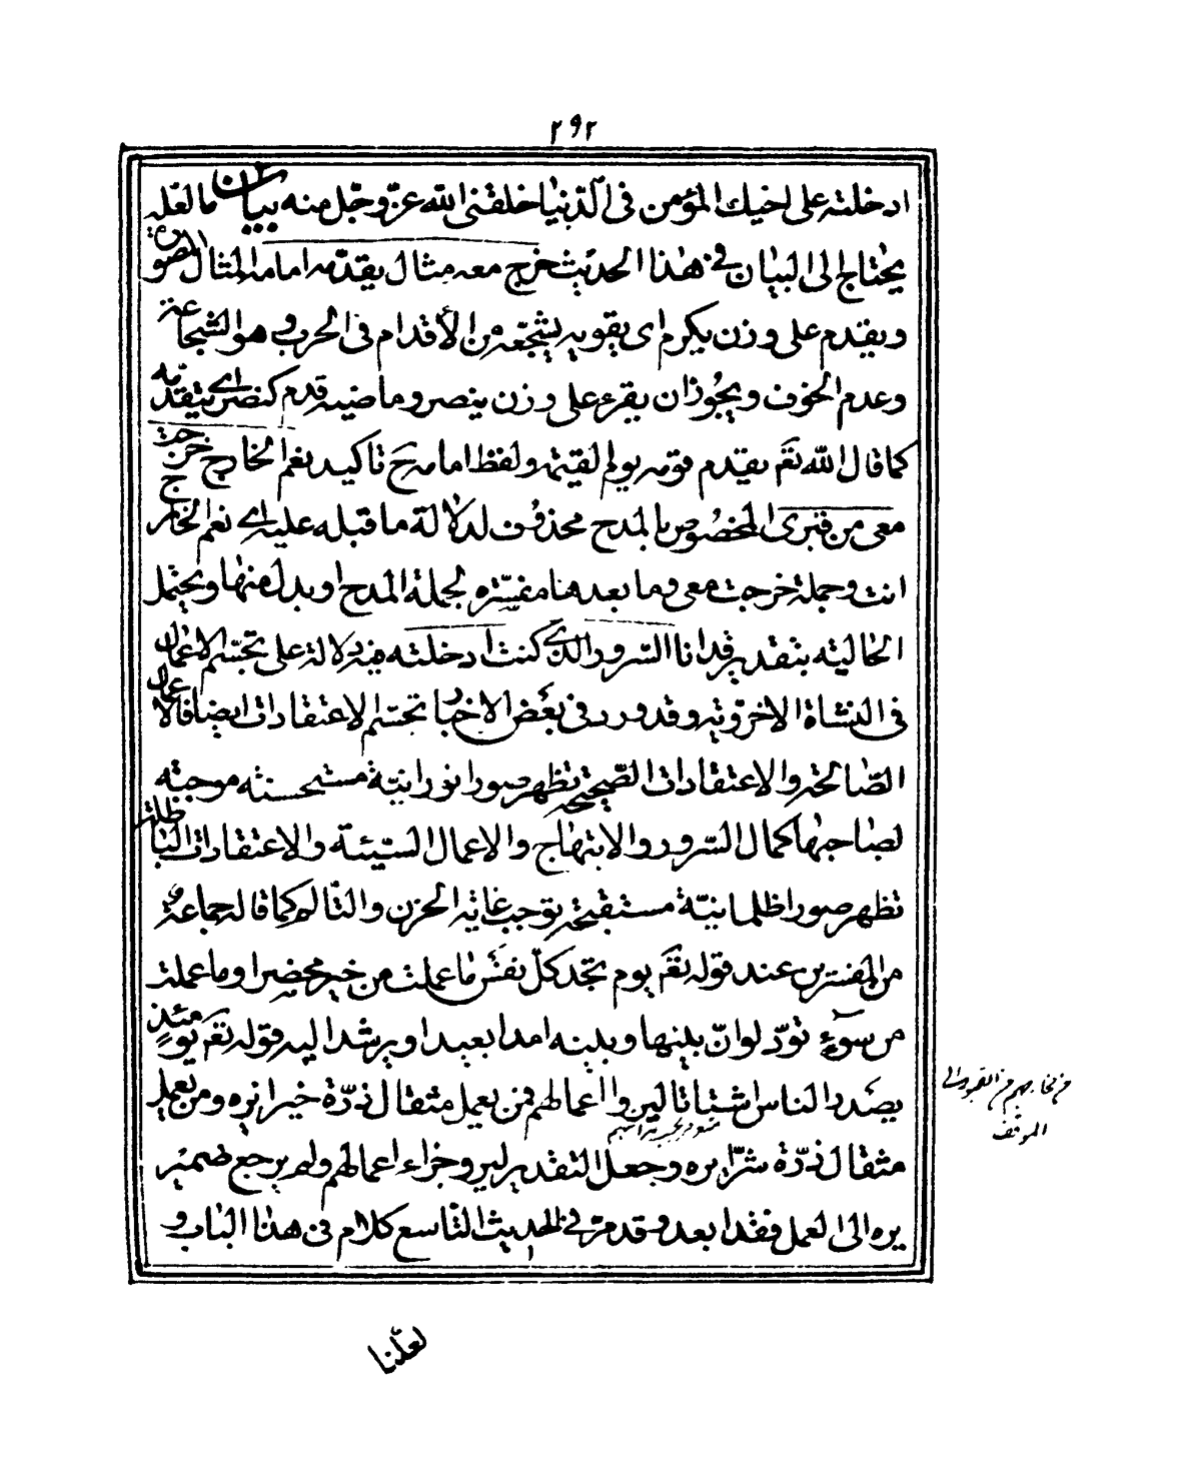 ٢٩٢
ادخلته على اخيك المؤمن فى الدّنيا خلقنى اللّه عزّ وجّل منه بيان ما لعلّه
يحتاج الى البيان فى هذا الحديث خرج معه مثال يقدّمه امامه المثال الصورة
ويقدم على وزن يكرم اى يقويه يشجّعه من الأقدام فى الحرب وهو الشجاعة
وعدم الخوف ويجوز ان يقرء على وزن ينصر وماضيه قدم كنصر اى يتقدّمه
كما قال اللّه تعَ يقدم قومه يوم القيمة ولفظ امامه ح تاكيد نعم الخارج خرجت
معى من قبرى المخصوص بالمدح محذوف لدلالة ما قبله عليه اى نعم الخارج
انت وجملة خرجت معى وما بعدها مفسّره لجملة المدح او بدل منها ويحتمل
الحاليته بتقدير قد انا السّرور الذى كنت ادخلته فيه دلالة على تجسّم الاعمال
فى النشاة الاخرّويّه وقد ورد فى بعض الاخبار تجسّم الاعتقادات ايضا فالاعمال
الصّالحة والاعتقادات الصّحيحة تظهر صورا نورانيّة مستحسنته موجبته
لصاحبها كمال السّرور والابتهاج والاعمال السّيئة والاعتقادات الباطلة
تظهر صورا ظلمانيّة مستقبحة توجب غاية الحزن والتّالم كما قاله جماعة
من المفسّرين عند قوله تعَ يوم تجد كلّ نفس ما عملت من خير محضرا وما عملت
من سوٓءٍ تودّ لو انّ بينها وبينه امدا بعيدا ويرشد اليه قوله تعَ يومئذٍ
يصَدر الناس اشتاتا ليروا أعمالهم فمن يعمل مثقال ذرّة خيرا يره ومن يعمل
من مخارجهم من القبور الى
الموقف
مثقال ذرّة شرّا يره وجعل التقدير ليروجزاء اعمالهم ولم يرجع ضمير
يره الى العمل فقد ابعد وقد مرّ فى الحديث التّاسع كلام فى هذا الباب و
لعلّنا